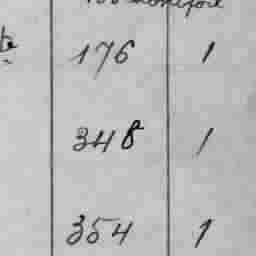 176 1
348 1
354 1